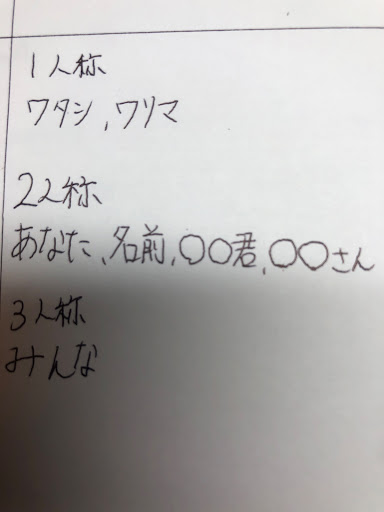 1人称
ワタシ,ワリマ
2人称
あなた、名前,〇〇君,〇〇さん
3人称
みんな